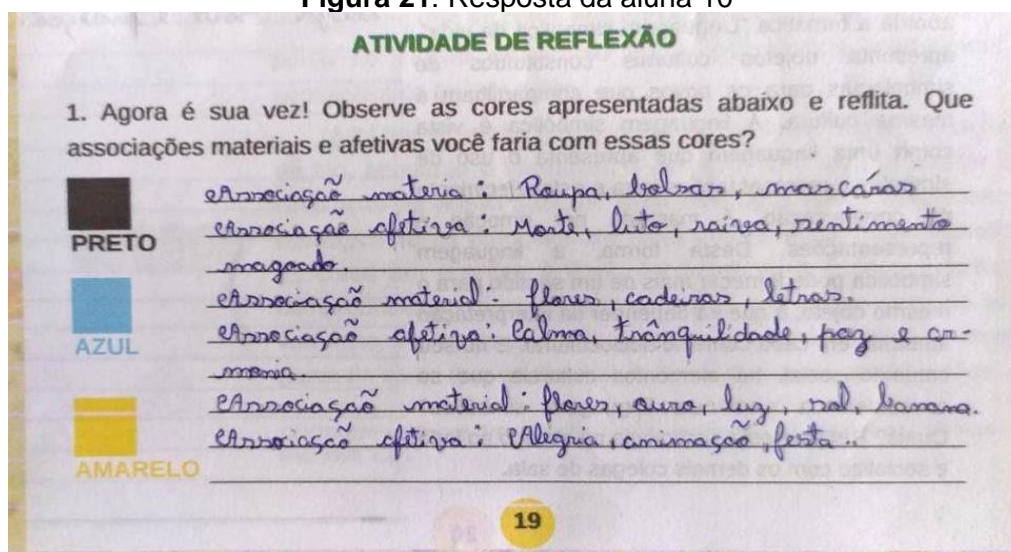 Figura 21. Resposta da aluna 10
ATIVIDADE DE REFLEXÃO
1. Agora é sua vez! Observe as cores apresentadas abaixo e reflita. Que
associações materiais e afetivas você faria com essas cores?
Associação material: Roupa, bolsas, mascáras
PRETO
Associação afetiva: Morte, luto, raiva, sentimento
magoado.
Associação material: flores, cadeiras, letras.
AZUL
Associação afetiva: Calma, trânquilidade, paz e ar-
monia.
Associação material: flores, ouro, luz, sol, banana.
Associação afetiva: Alegria, animação, festa..
AMARELO
19